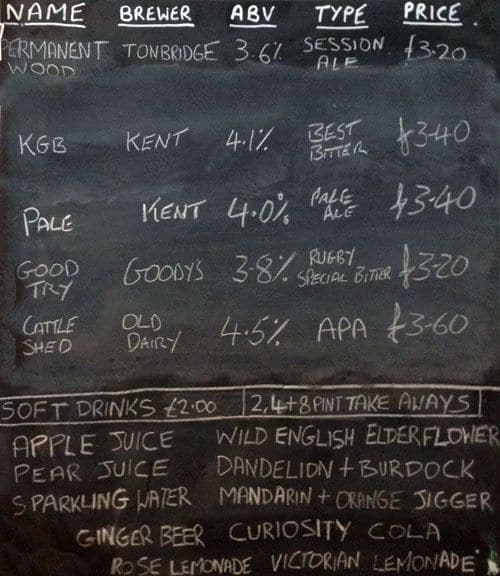 NAME BREWER ABV TYPE PRICE
PERMANENT WOOD TONBRIDGE 3.6% SESSION ALE £3.20
KGB KENT 4.1% BEST BITTER £3.40
PALE KENT 4.0% PALE ALE £3.40
GOOD TRY GOODY'S 3.8% RUGBY SPECIAL BITTER £3.20
CATTLE SHED OLD DAIRY 4.5% APA £3.60
SOFT DRINKS £2.00 2,4+8 PINT TAKE AWAYS
APPLE JUICE WILD ENGLISH ELDERFLOWER
PEAR JUICE DANDELION + BURDOCK
SPARKLING WATER MANDARIN + ORANGE JIGGER
GINGER BEER CURIOSITY COLA
ROSE LEMONADE VICTORIAN LEMONADE